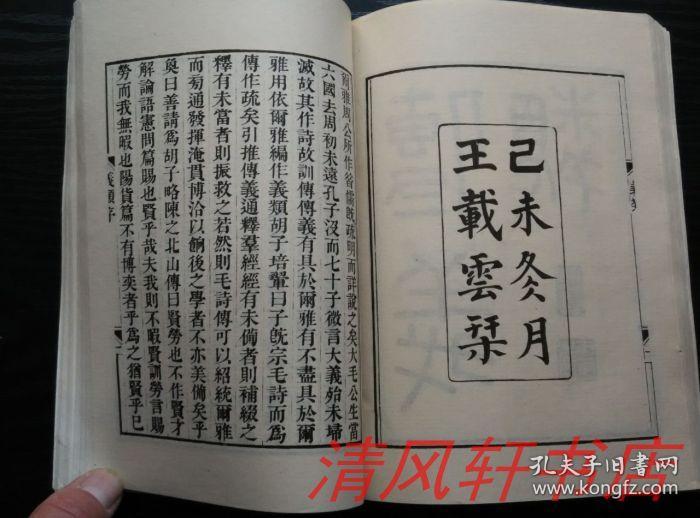 己未冬月
王載雲栞
爾雅周公所作諸儒旣疏明而詳說之矣大毛公生當
六國去周初未遠孔子沒而七十子微言大義殆未埽
滅故其作詩故訓傳傳義有具於爾雅有不盡具於爾
雅用依爾雅編作義類胡子培翬曰子旣宗毛詩而爲
傳作疏矣引推傳義通釋羣經經有未備者則補綴之
釋有未當者則振救之若然則毛詩傳可以紹統爾雅
而旁通發揮淹貫博洽以餉後之學者不亦美備矣乎
奐曰善請爲胡子略陳之北山傳曰賢勞也不作賢才
解論語憲問篇賜也賢乎哉夫我則不暇賢訓勞言賜
勞而我無暇也陽貨篇不有博奕者乎爲之猶賢乎已
義類序
清风轩书店
孔夫子旧书网
www.kongfz.com